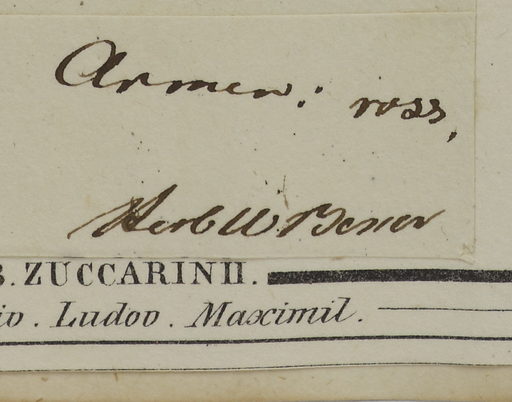 Armen: ross,
Herb W Besser
B. ZUCCARINII.
io. Ludov. Maximil.